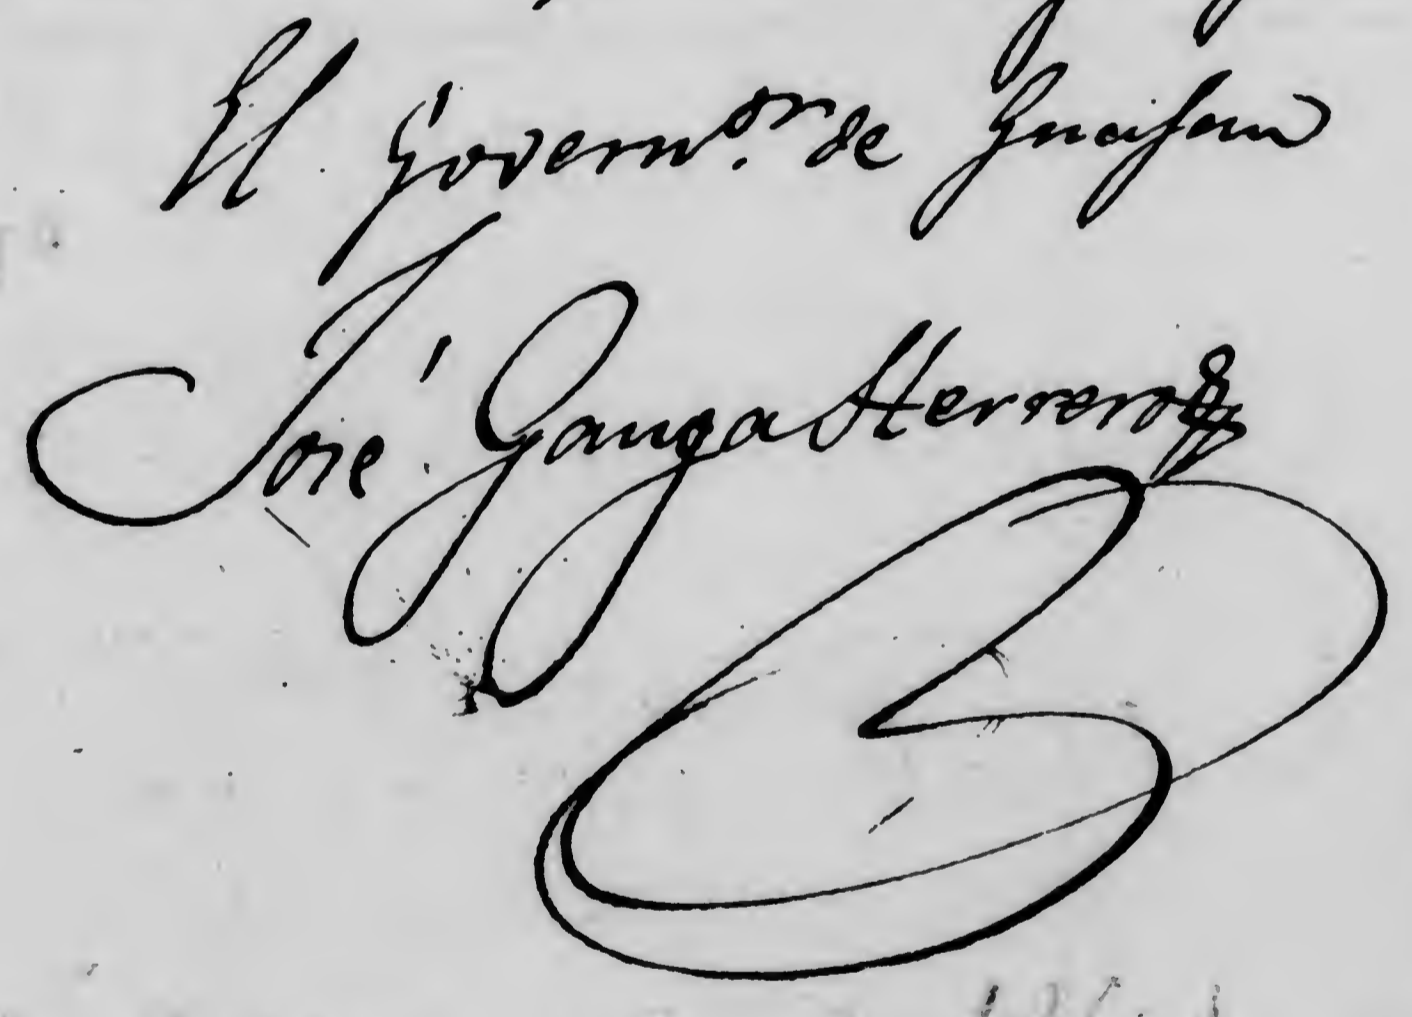 El Govern.ᵒʳ de Guajan
José Ganga Herrero